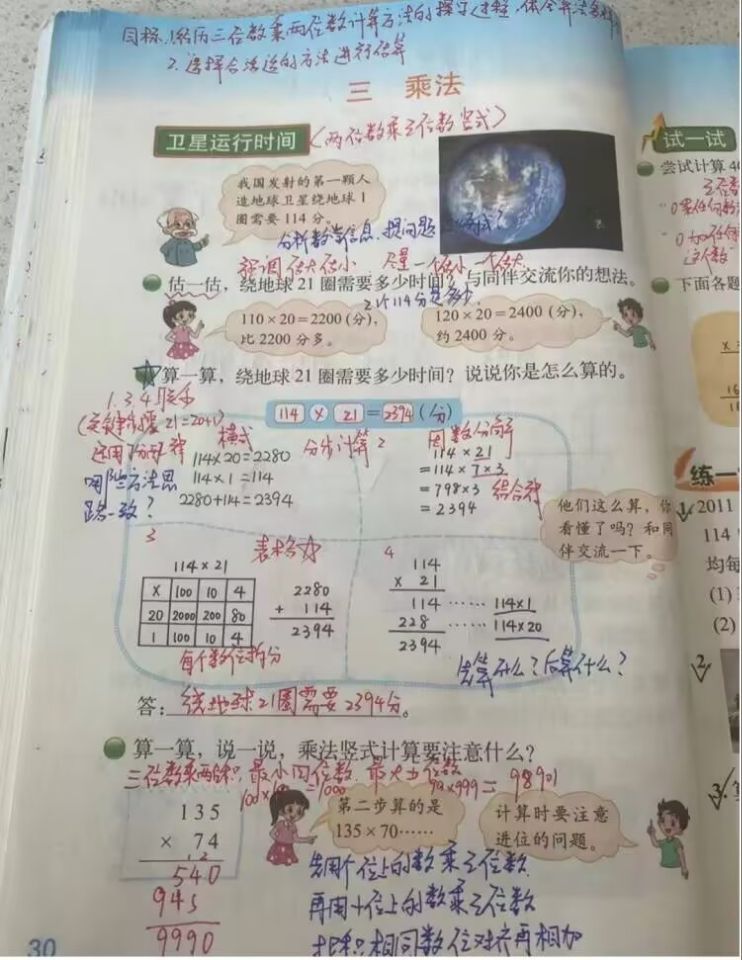 目标:1.经历三位数乘两位数计算方法的探究过程,体会算法多样
2.选择合适的方法进行估算
三 乘法
卫星运行时间
(两位数乘三位数竖式)
我国发射的第一颗人
造地球卫星绕地球1
圈需要114分。
分析数学信息,提问题
强调 估大估小 尽量一估小一估大
估一估,绕地球21圈需要多少时间?与同伴交流你的想法。
21个114分是多少.
110×20=2200(分),
比2200分多。
120×20=2400(分),
约2400分。
算一算,绕地球21圈需要多少时间?说说你是怎么算的。
114 × 21 = 2394 (分)
1.3.4联系
(关键 21=20+1)
运用
哪些方法思
路一致?
横式
分步计算
114×20=2280
114×1=114
2280+114=2394
2
因数分解
114×21
=114×7×3
=798×3
=2394
结合律
他们这么算,你
看懂了吗?和同
伴交流一下。
3
表格
114×21
× 100 10 4
20 2000 200 80
1 100 10 4
2280
+ 114
2394
每个数位拆分
4
114
× 21
114 …… 114×1
228 …… 114×20
2394
先算什么?后算什么?
答:绕地球21圈需要2394分。
算一算,说一说,乘法竖式计算要注意什么?
三位数乘两位积,最小四位数,最大五位数
99×999=98901
135
× 74
540
945
9990
第二步算的是
135×70……
计算时要注意
进位的问题。
先用个位上的数乘三位数
再用十位上的数乘三位数
把积相同数位对齐再相加
30
试一试
尝试计算
"0乘任何数
"0加任何
这个数"
下面各题
练一
1. 2011
114
均每
(1)
(2)
2.
3.